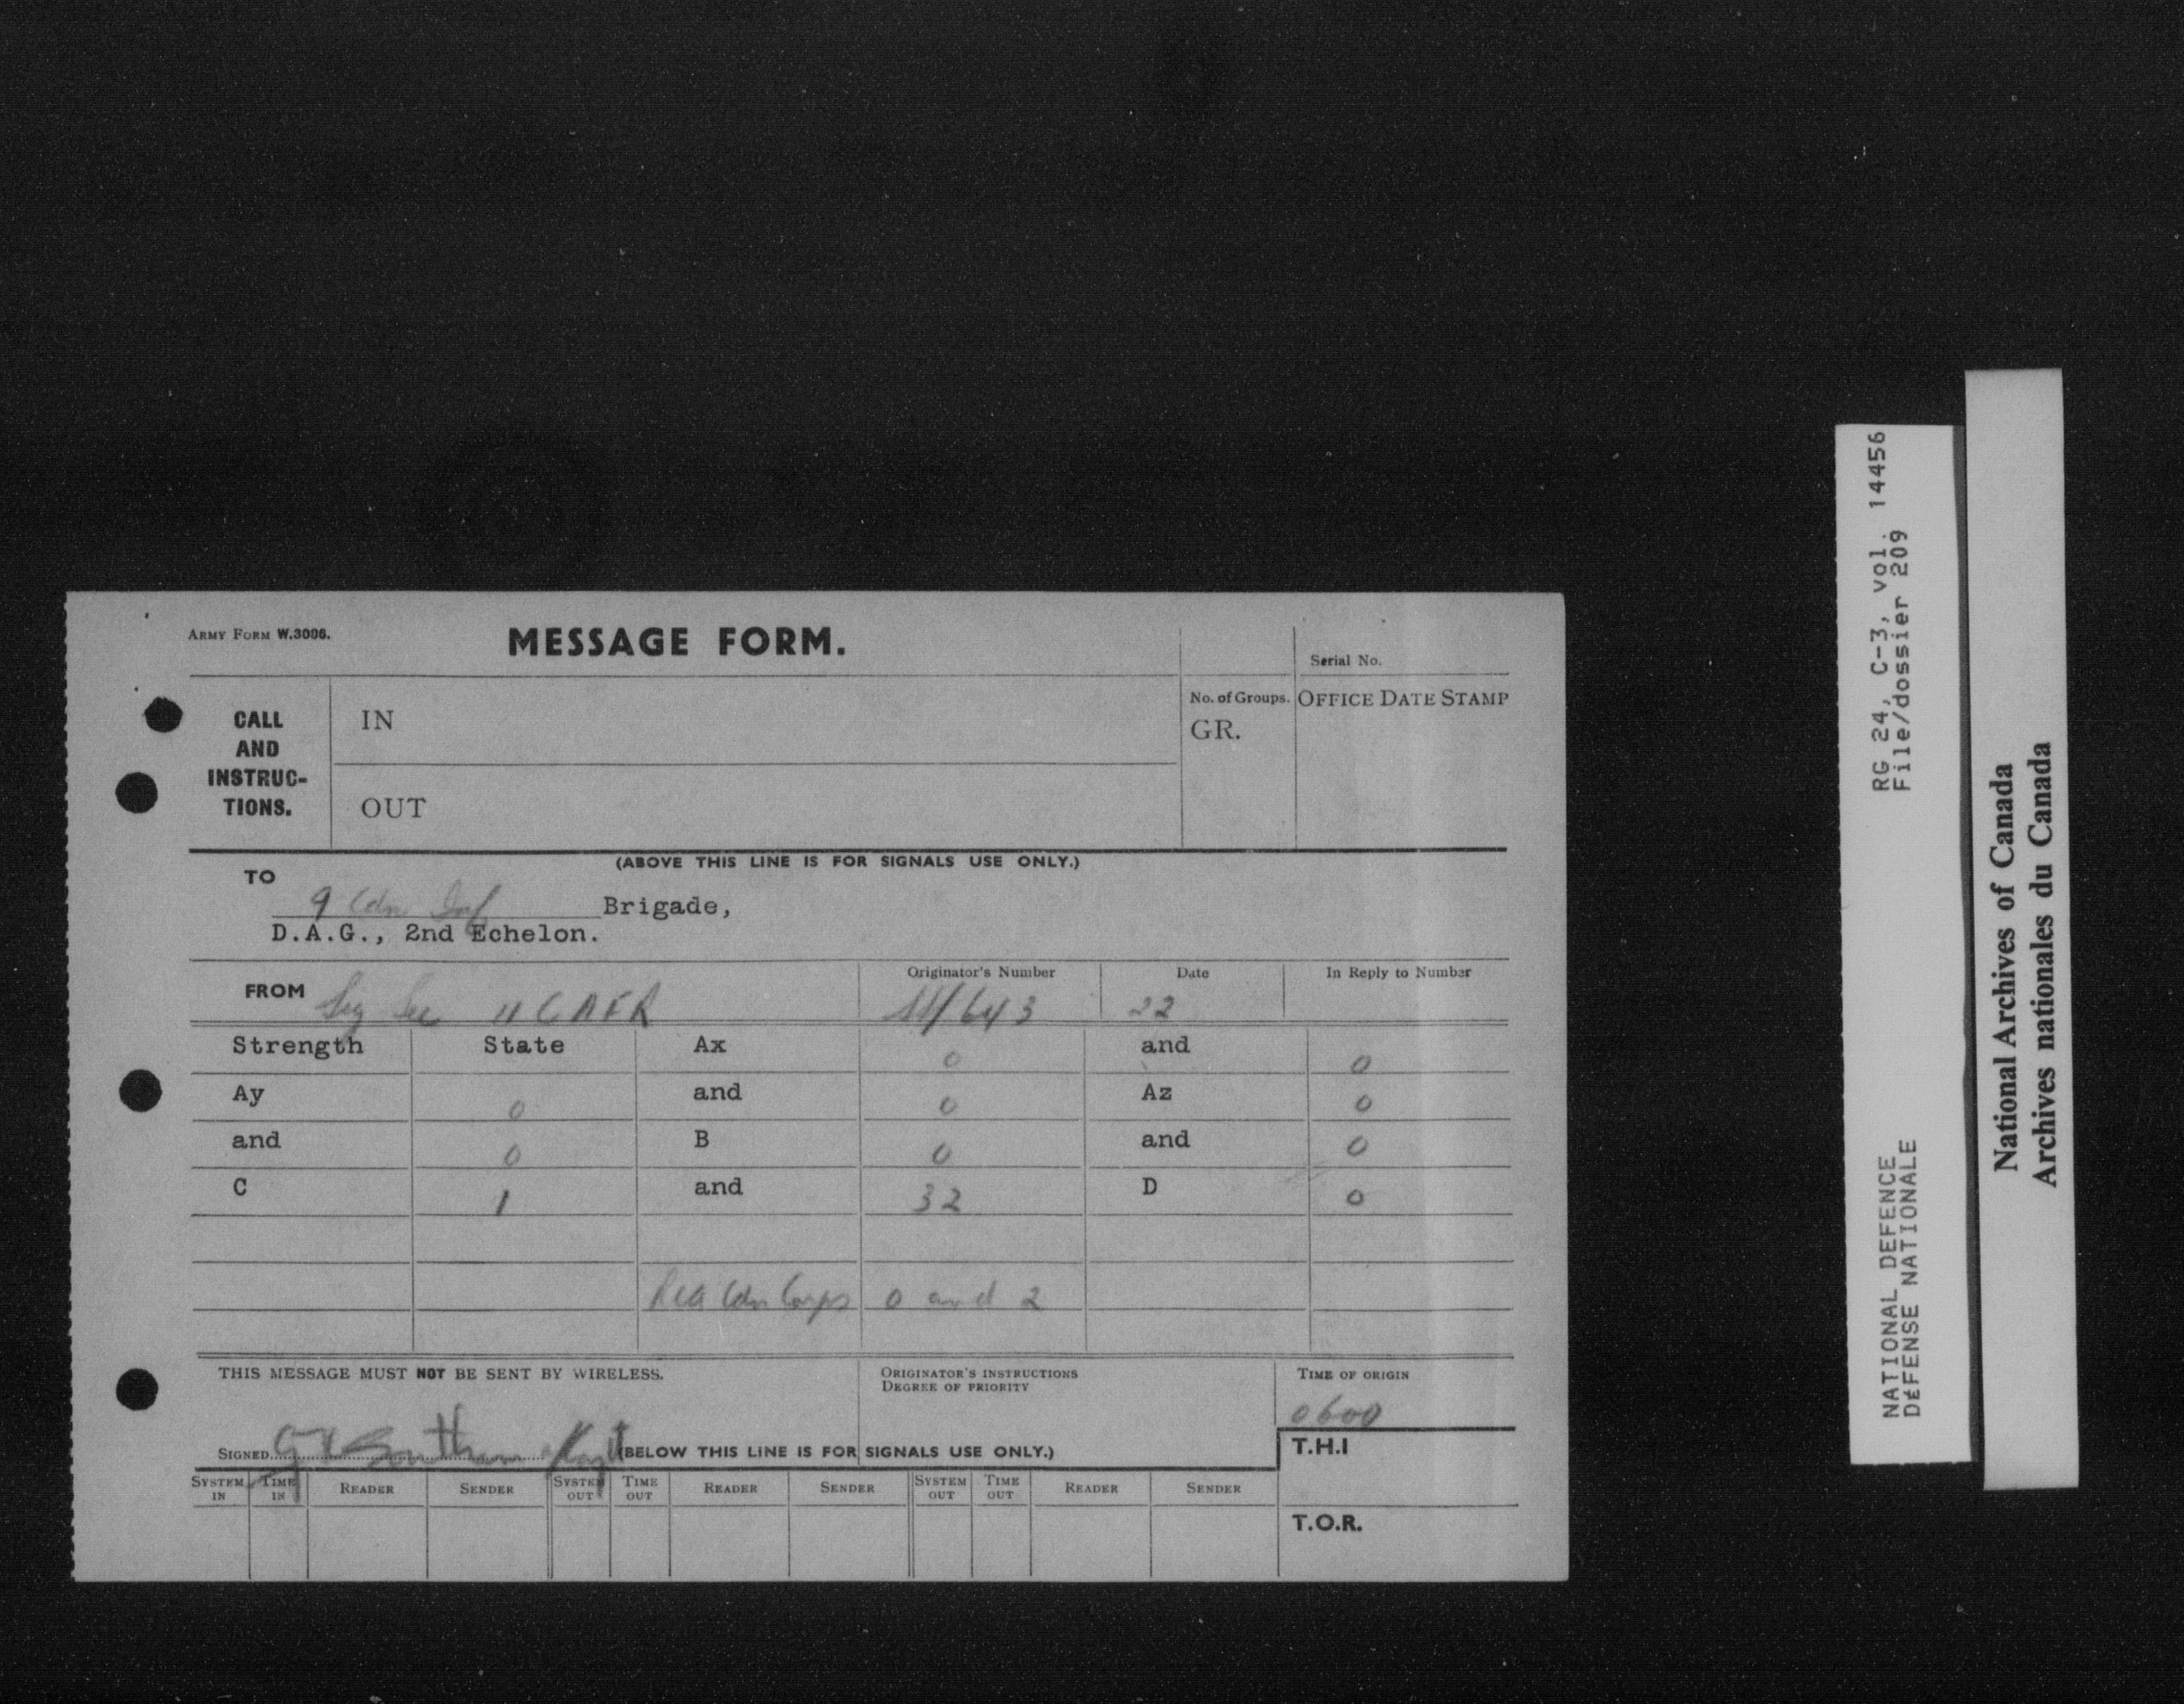 ARMY FORM W.3006.
MESSAGE FORM.
Serial No.
CALL AND INSTRUC-TIONS.
IN
No. of Groups.
GR.
OFFICE DATE STAMP
OUT
(ABOVE THIS LINE IS FOR SIGNALS USE ONLY.)
TO
9 Cdn Inf Brigade,
D.A.G., 2nd Echelon.
FROM Sig Sec 11 CAFR
Originator's Number /643
Date 22
In Reply to Number
Strength State Ax 0 and 0
Ay 0 and 0 Az 0
and 0 B 0 and 0
C 1 and 32 D 0
Cdn Corps 0 and 2
THIS MESSAGE MUST NOT BE SENT BY WIRELESS.
ORIGINATOR'S INSTRUCTIONS
DEGREE OF PRIORITY
TIME OF ORIGIN
0600
SIGNED Southam Capt
(BELOW THIS LINE IS FOR SIGNALS USE ONLY.)
T.H.I
SYSTEM IN TIME IN READER SENDER SYSTEM OUT TIME OUT READER SENDER SYSTEM OUT TIME OUT READER SENDER
T.O.R.
NATIONAL DEFENCE RG 24, C-3, vol. 14456
DÉFENSE NATIONALE File/dossier 209
National Archives of Canada
Archives nationales du Canada